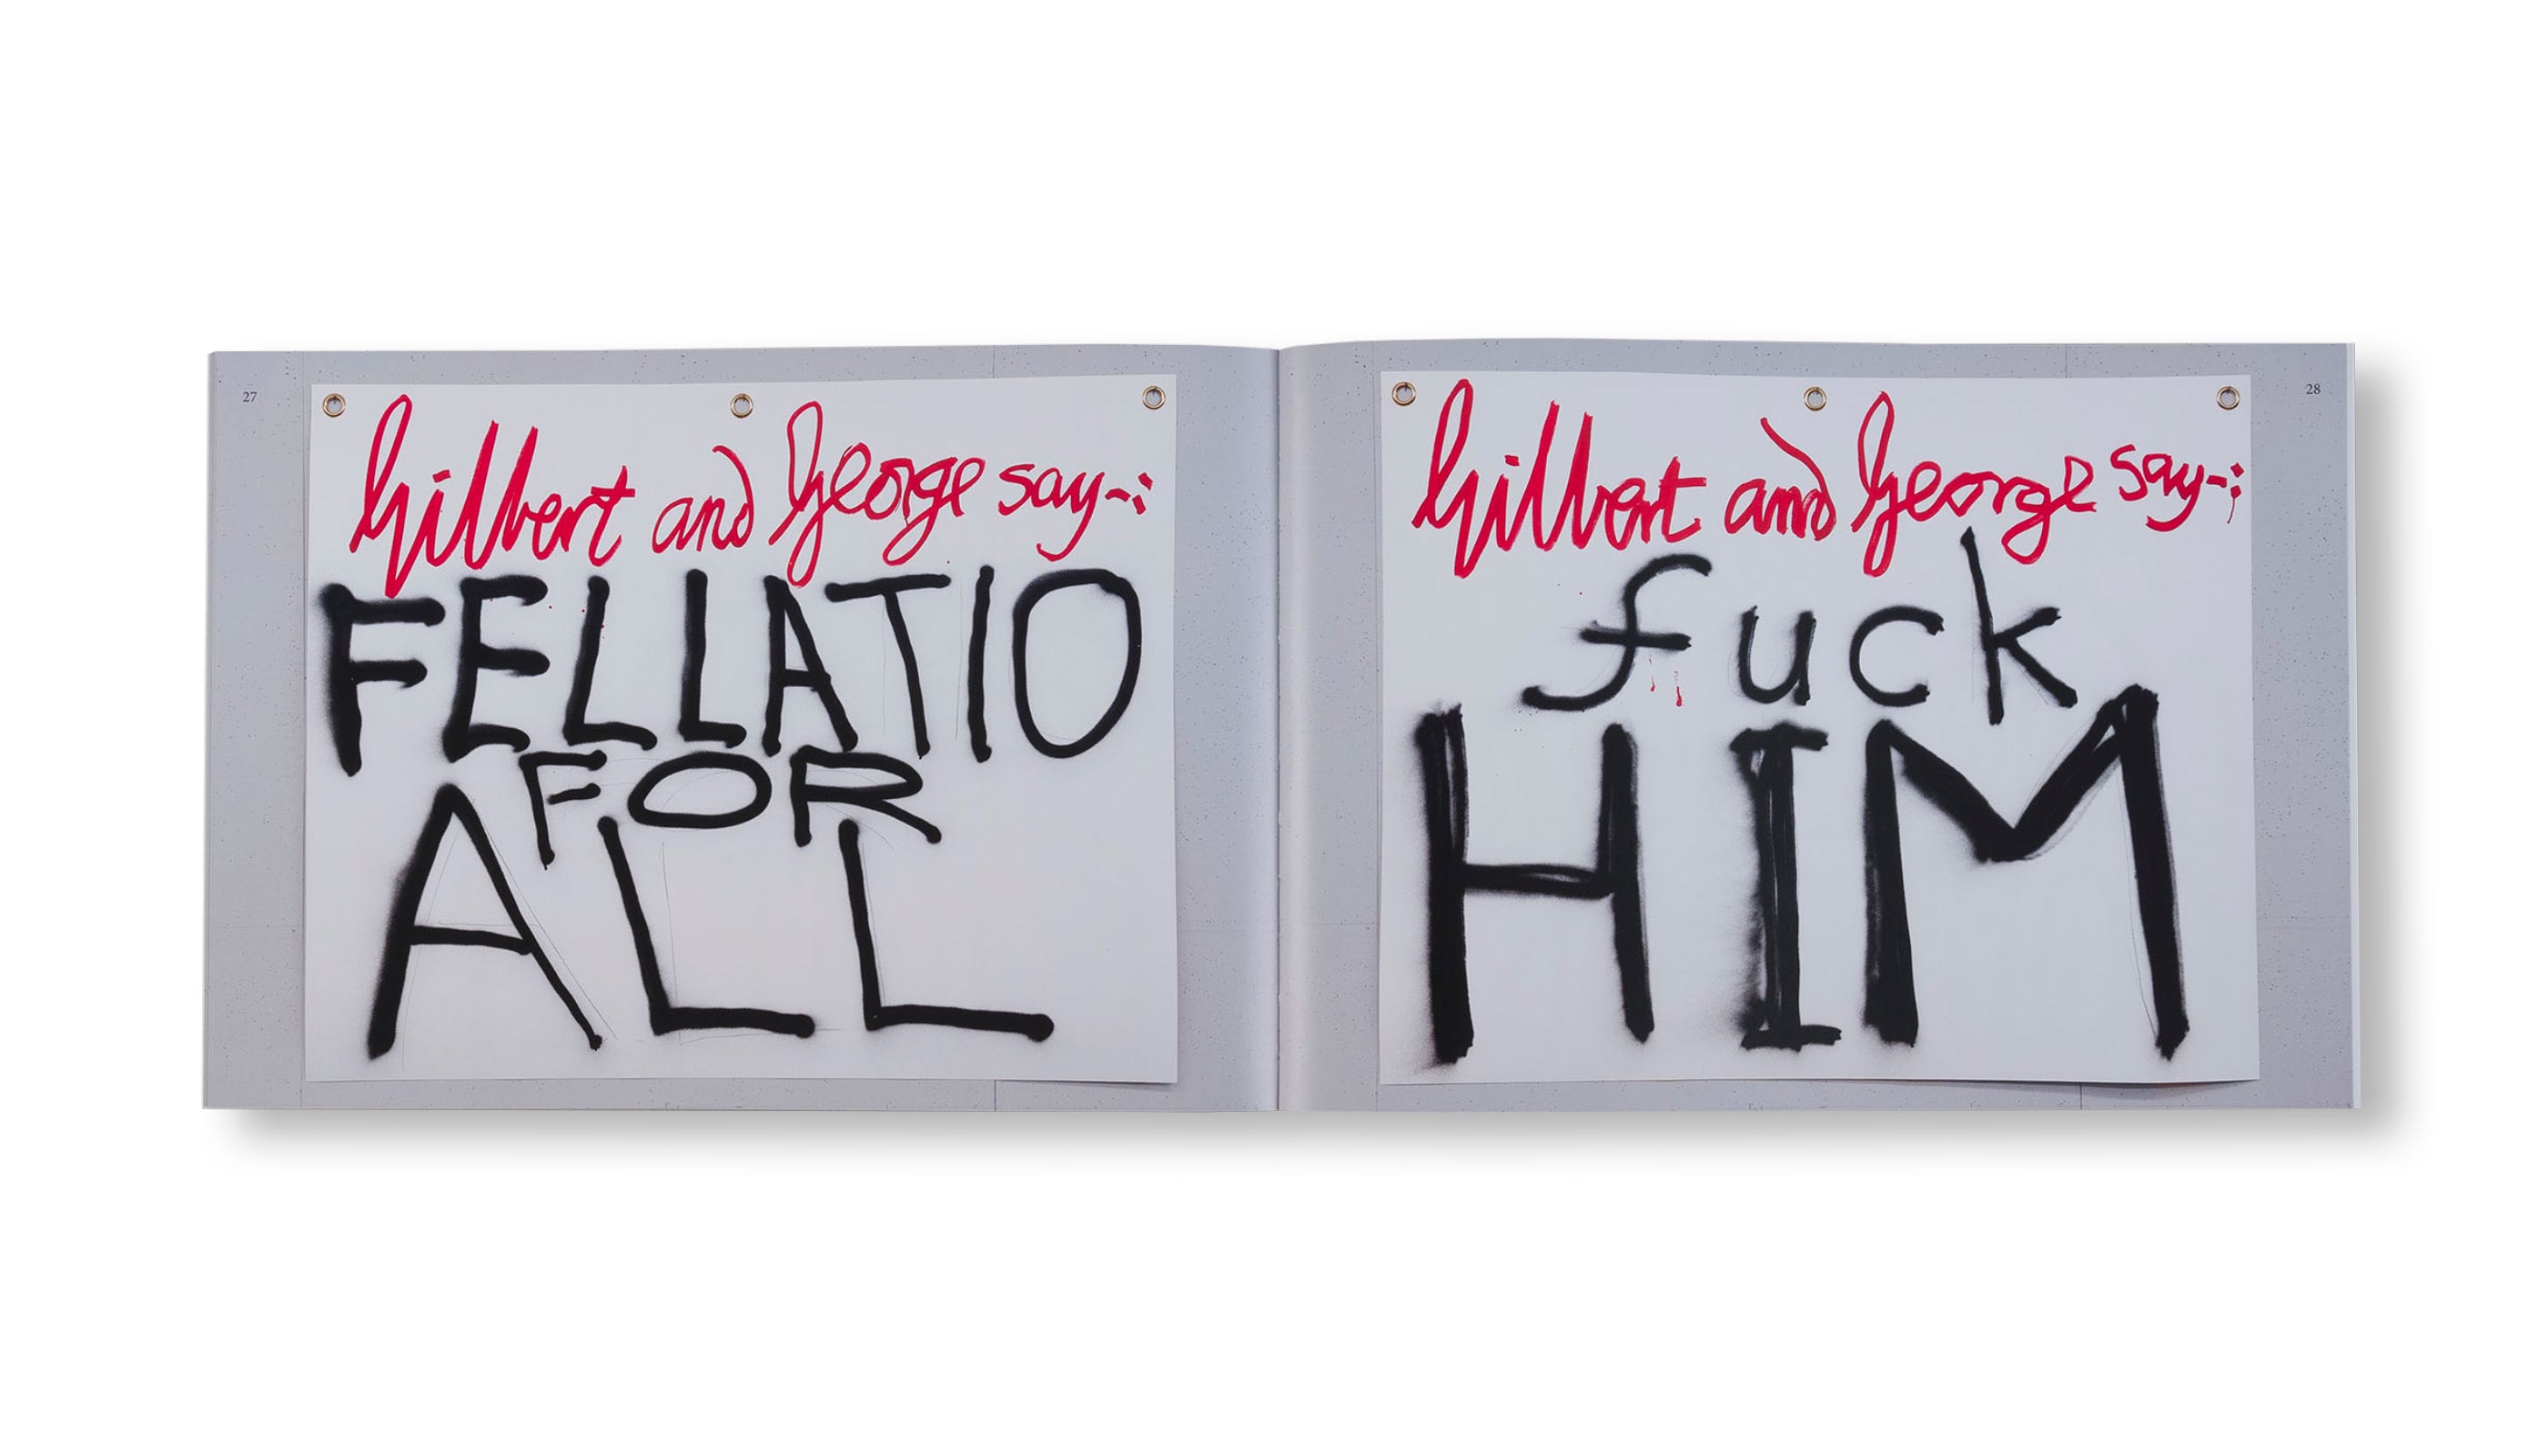 27
Gilbert and George say-:
FELLATIO
FOR
ALL
28
Gilbert and George say-:
fuck
HIM